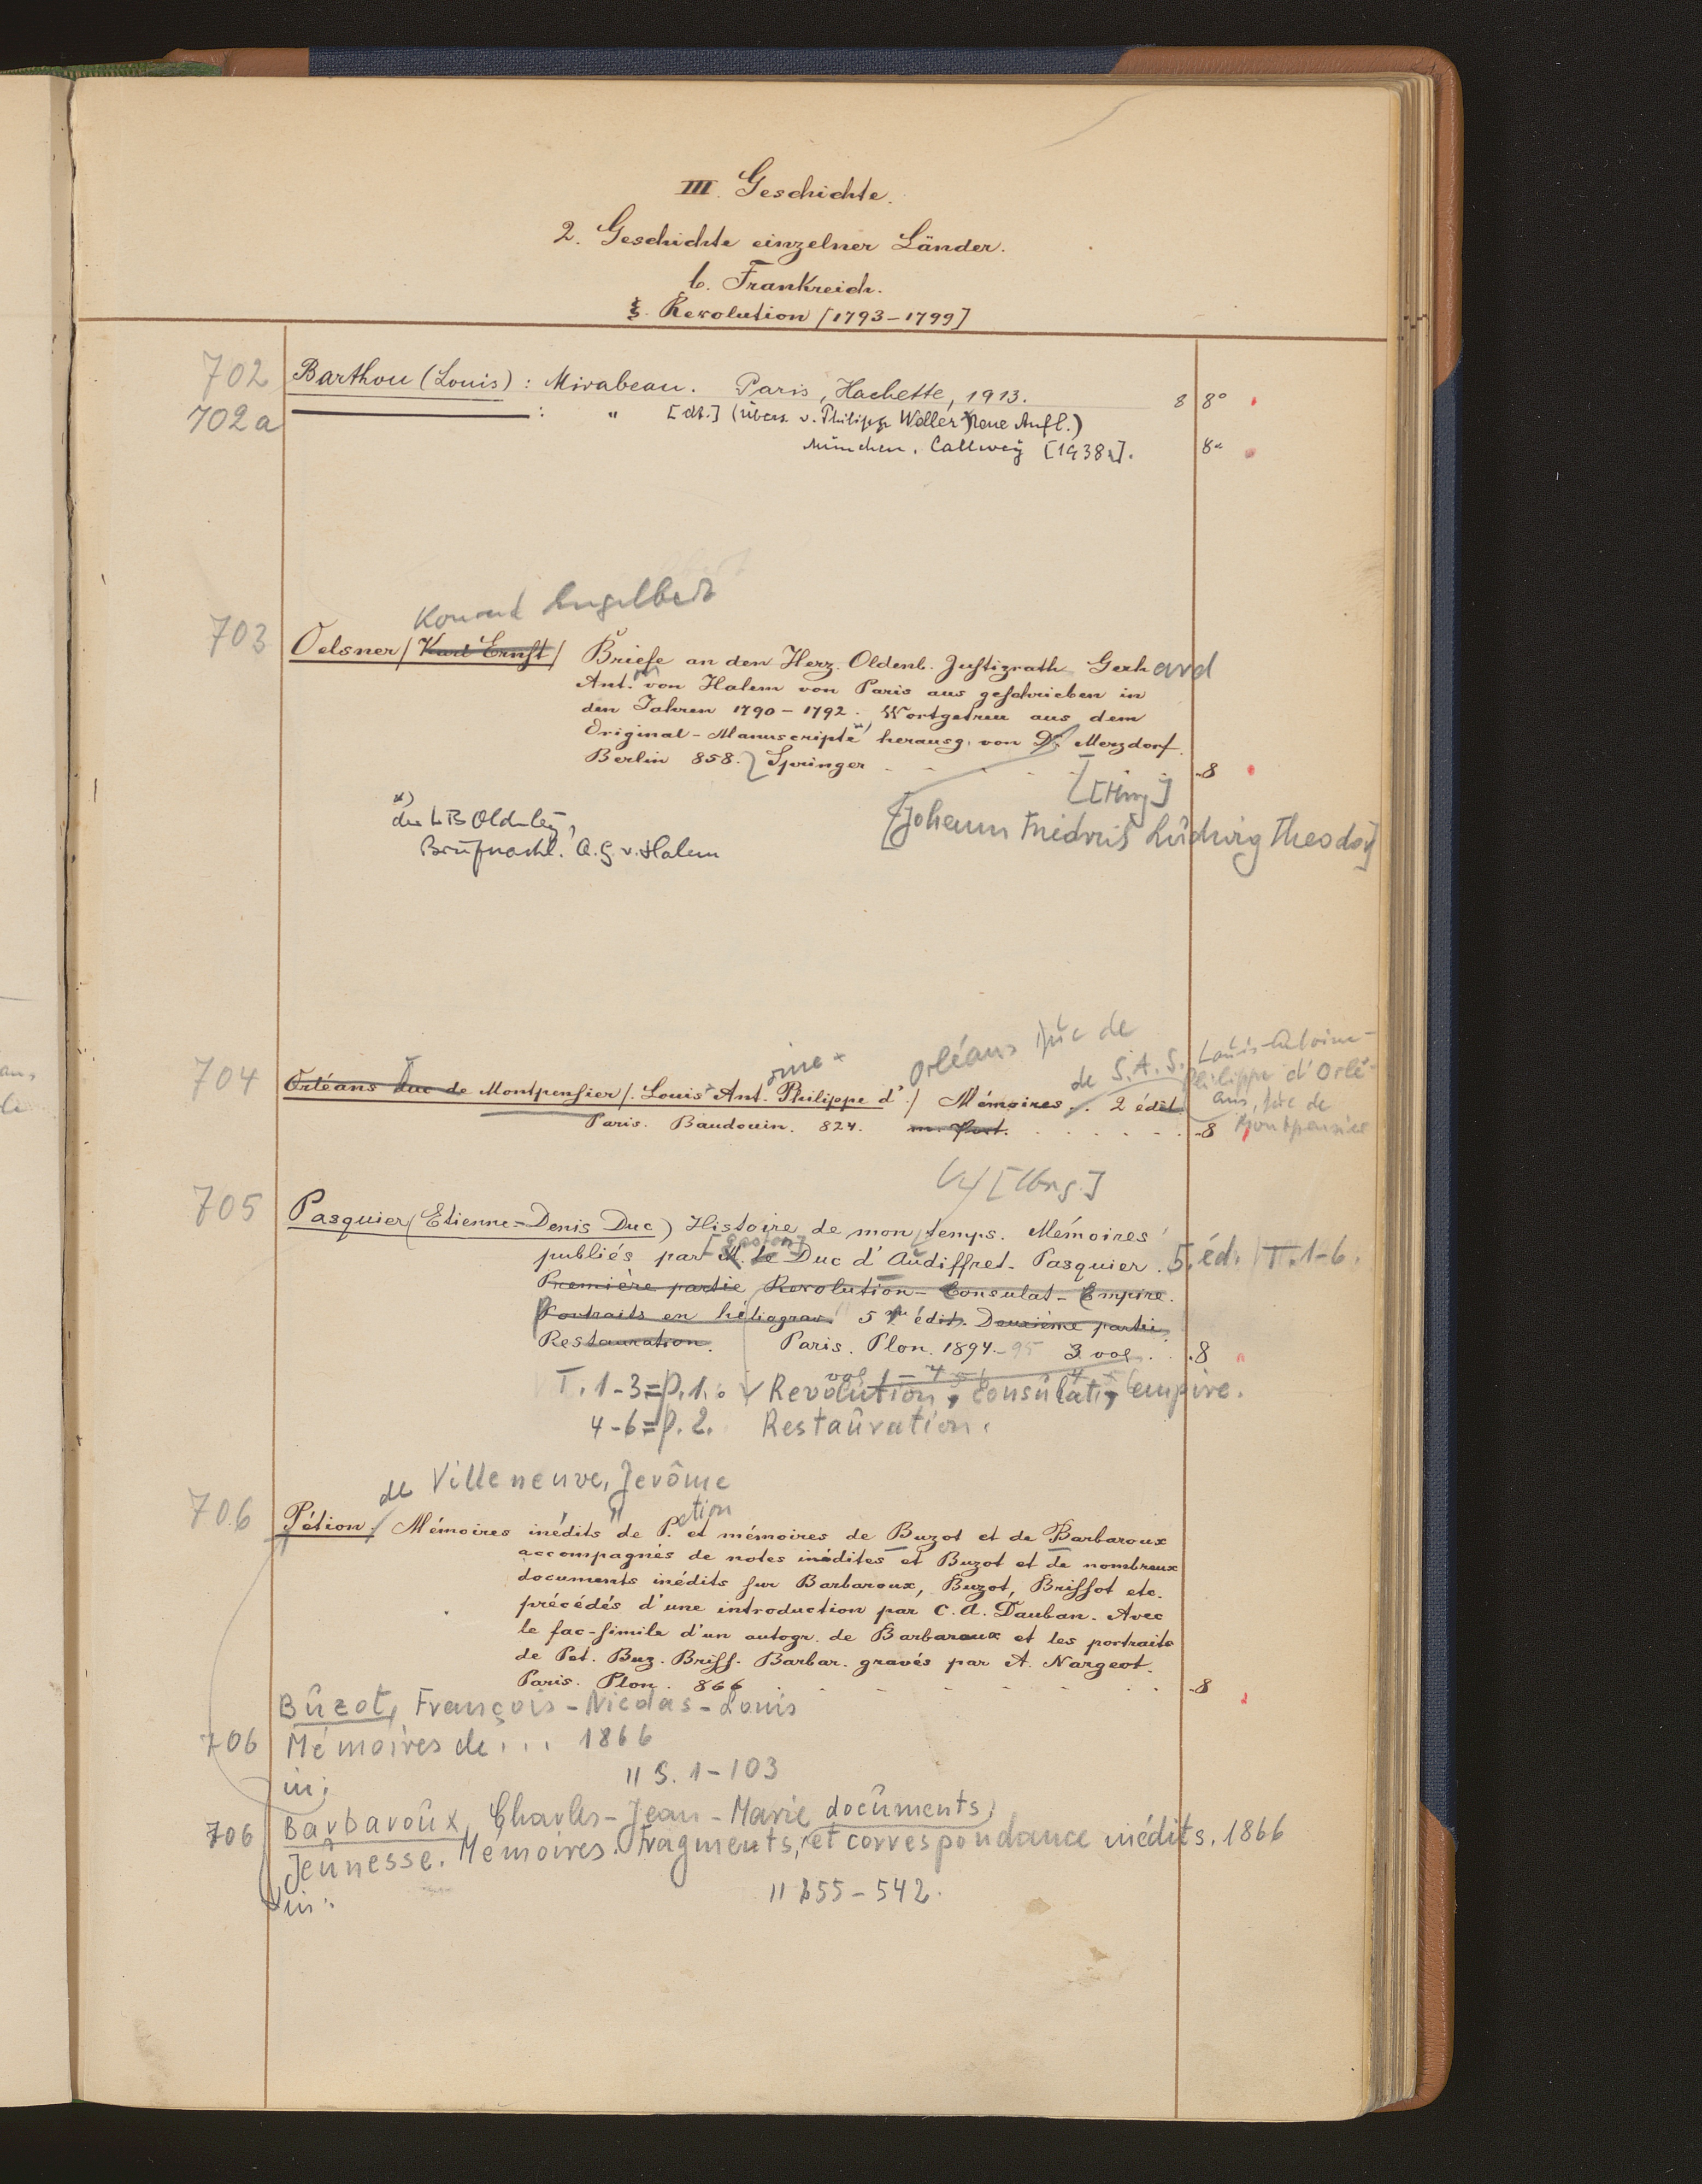 III. Geschichte.
2. Geschichte einzelner Länder.
b. Frankreich.
ξ. Revolution [1793-1799]
702 Barthou (Louis): Mirabeau. Paris, Hachette, 1913. 8 8°
702a : " [dt.] (übers. v. Philipp Weller Neue Aufl.)
München, Callwey [1938]. 8°
Konrad Engelbert
703 Oelsner / Karl Ernst / Briefe an den Herz. Oldenb. Justizrath Gerhard
Ant. von Halem von Paris aus geschrieben in
den Jahren 1790-1792. Wortgetreu aus dem
Original-Manuscripte *) herausg. von Dr. Merzdorf.
Berlin 858. Springer 8
[Hrsg]
*)
der LB Oldenbg,
Briefnachl. v. Halem
[Johann Friedrich Ludwig Theodor]
oine × Orléans Duc de
de S.A.S. Louis-Antoine-
704 Orléans Duc de Montpensier /. Louis Ant. Philippe d' / Mémoires. 2 édit.
Philippe d'Orlé-
ans, duc de
Montpensier
Paris. Baudouin. 824. m. Port. 8
[Hrsg.]
705 Pasquier (Etienne-Denis Duc) Histoire de mon temps. Mémoires
[Gaston]
publiés par M. le Duc d'Audiffret-Pasquier. 5. éd. T. 1-6.
Première partie Revolution-Consulat-Empire.
Portraits en héliograv. 5 édit. Deuxième partie
Restauration. Paris. Plon. 1894-95 3 vol. 8
T. 1-3=p.1. Revolution, Consulat, empire.
4-6=p.2. Restauration.
de Villeneuve, Jerôme
etion
706 Pétion / Mémoires inédits de P. et mémoires de Buzot et de Barbaroux
accompagnés de notes inédites et Buzot et de nombreux
documents inédits sur Barbaroux, Buzot, Brissot etc.
précédés d'une introduction par C. A. Dauban. Avec
le fac-simile d'un autogr. de Barbaroux et les portraits
de Pet. Buz. Briss. Barbar. gravés par A. Nargeot.
Paris. Plon. 866 8
Buzot, François-Nicolas-Louis
706 Mémoires de ... 1866
in: " S. 1-103
706 Barbaroux, Charles-Jean-Marie documents,
Jeunesse. Mémoires. Fragments, et correspondance inédits. 1866
in: " 255-542.